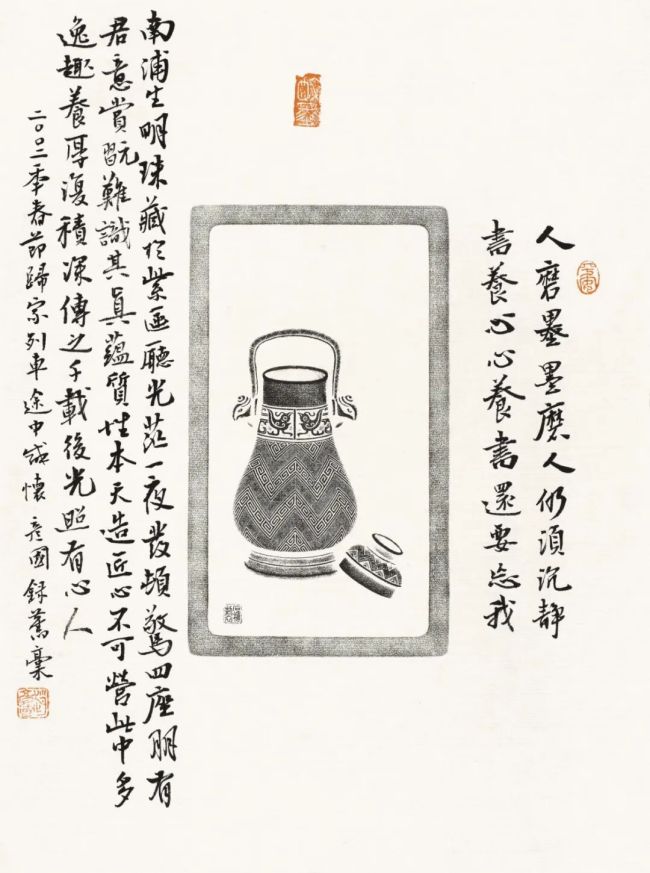 人磨墨墨磨人仍須沉静
書養心心養書還要忘我
南浦生明珠藏扵紫匣聽光茫一夜發頓驚四座朋有
君意賞翫難識其真蘊質性本天造匠心不可營此中多
逸趣養厚復積深傳之千載後光照有心人
二〇〇二秊春節歸家列車途中感懷彥國録舊稾